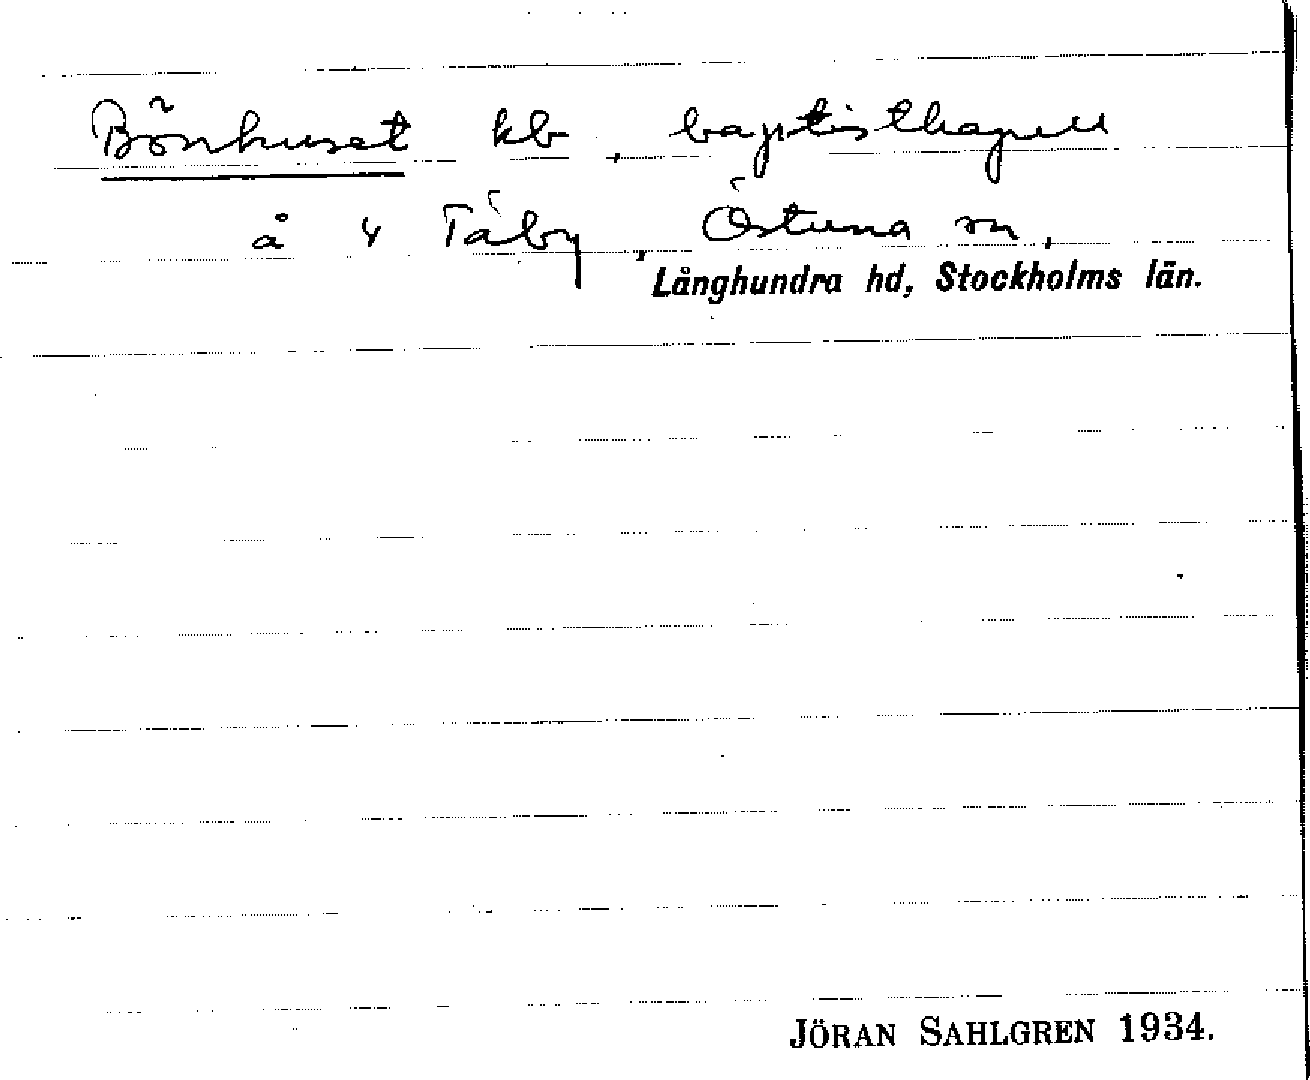 Bönhuset kb, baptistkapell
å 4 Täby, Östuna sn,
Långhundra hd, Stockholms län.
JÖRAN SAHLGREN 1934.